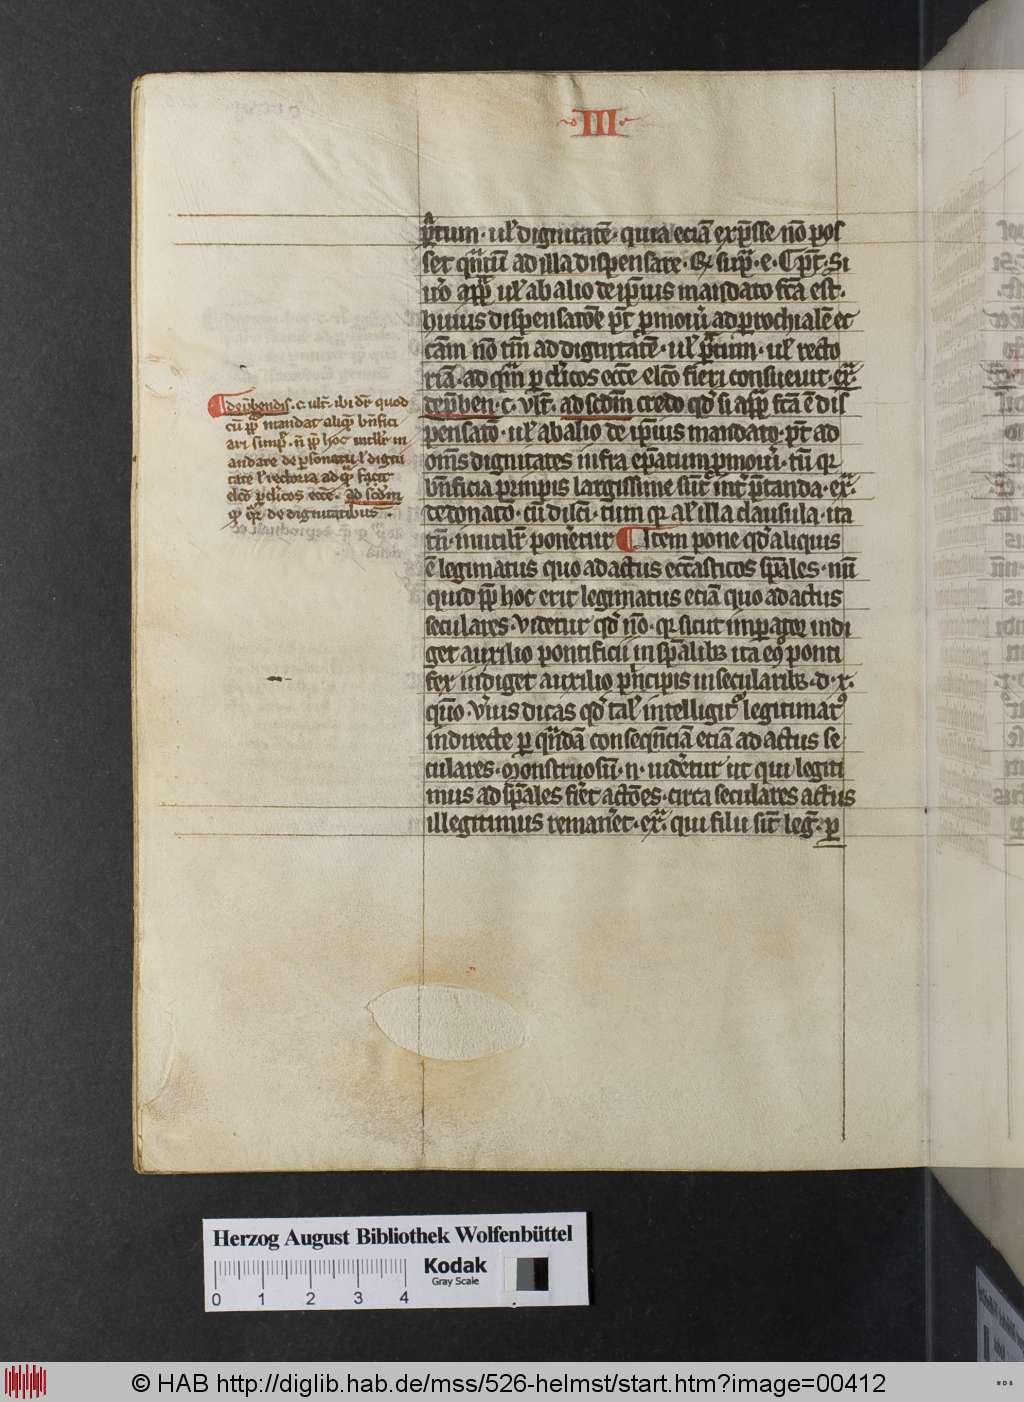 III
p̄tum · ul' dignitatē · quia eciā exp̄sse nō pos
set q̄ntū ad illa dispensare · supᷓ · e · c pͥt · Si
ūo app̄ ul' ab alio de ip̄ius mandato fc̄a est ·
huius dispensatōē pͭt ꝓmoiū ad parrochialē ec
cām nō tm̄ ad dignitatē · ul' p̄tum · ul' recto
riā · ad q̄m ꝑ cl'icos ecc̄e elc̄o fieri consueuit · exᷓ ·
de p̄ben · c · ult̄ · ad scd̄m credo qd' si a pp̄ fc̄a ē dis
pensatō · ul' ab alio de ip̄ius mandato · pͭt ad
om̄s dignitates infra ep̄atum ꝓmoūi · tū qꝛ
bn̄ficia pͥncipis largissime sūt int̄p̄tanda · exᷓ ·
de donatō · cū dilci · tum qꝛ al' illa clausula · ita
tn̄ · inutilit̄ ponet̄ur ¶ Item pone qd' aliquis
ē legimatus quo ad actus ecc̄asticos sp̄ales · nū
quid pp̄ hoc erit legimatus eciā quo ad actus
seculares · videtur qd' nō · qꝛ sicut imperator indi
get auxilio pontificii in sp̄alibꝫ ita eꝯ ponti
fex indiget auxilio pͥncipis in secularibꝫ · d · x ·
qm̄o · v̓ius dicas qd' tal' intelligit᷑ legitimatꝰ
indirecte ꝑ qᷓndā conseqn̄ciā eciā ad actus se
culares · Monstruosū · n · uidet̄ur ut qui legiti
mus ad sp̄ales fiet̄ actōes · circa seculares actus
illegitimus remanet̄ · exᷓ · qui filii sīt leḡ · ꝑ
¶ de p̄bendis · c · ult̄ · ibi dr̄ quod
cū pp̄ mandat aliqͥ bn̄fici
ari simpͬ · n̄ pp̄ hoc uidet̄ m
andare de personatu l' digni
tate l' rectoria ad qᷓ facit
elcō ꝑ cl'icos ecc̄e · ad scd̄m
qͦ qr̄ de dignitatibus
Herzog August Bibliothek Wolfenbüttel
0 1 2 3 4
Kodak
Gray Scale
© HAB http://diglib.hab.de/mss/526-helmst/start.htm?image=00412